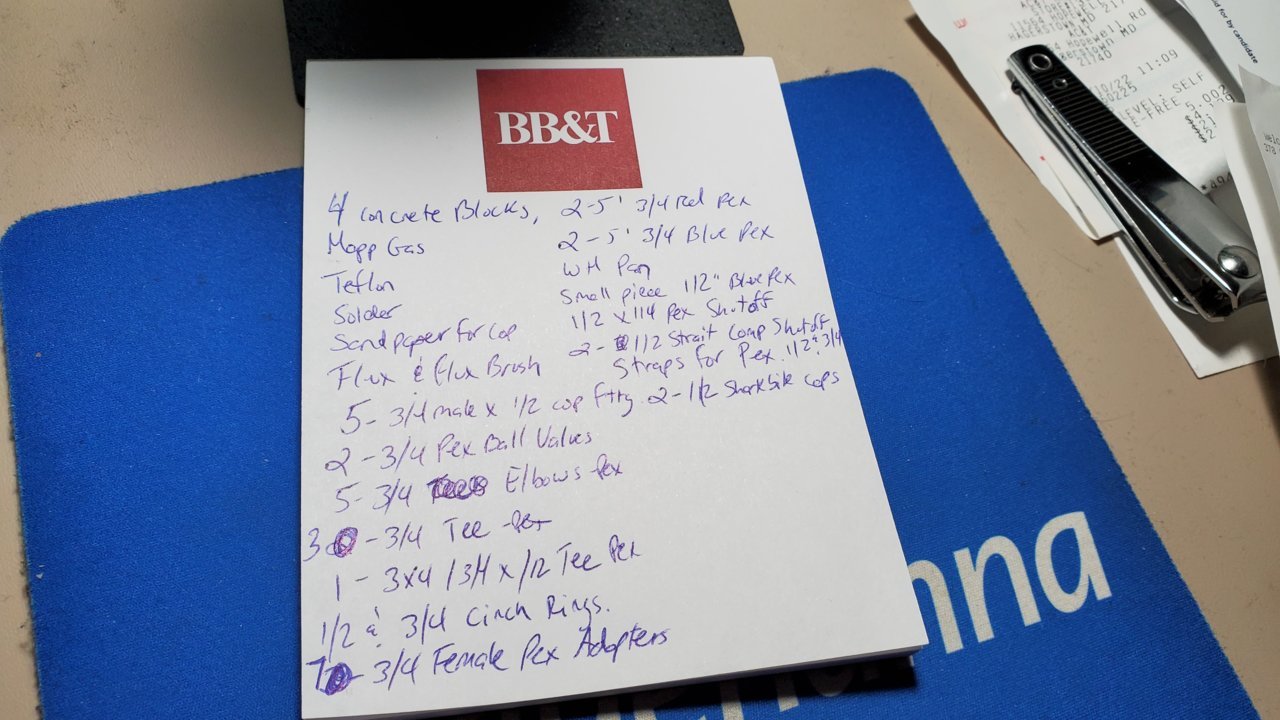 BB&T
4 Concrete Blocks,
Mapp Gas
Teflon
Solder
Sandpaper for Cop
Flux & Flux Brush
2-5' 3/4 Red Pex
2-5' 3/4 Blue Pex
WH Pan
Small piece 1/2" Blue Pex
1/2 x 1/4 Pex Shutoff
2- 1/2 Strait Comp Shutoff
Straps for Pex 1/2" 3/4
5- 3/4 male x 1/2 cop Fttg 2-1/2 Sharkbite caps
2-3/4 Pex Ball Valves
5-3/4 Elbows Pex
3 -3/4 Tee Pex
1- 3x4 / 3/4 x 1/2 Tee Pex
1/2 & 3/4 Cinch Rings.
7 - 3/4 Female Pex Adapters
nna
HAGERSTOWN MD 217
AC&T
Hopewell Rd
MD
21740
/22 11:09
00225
SELF
E-FREE
5.002
id for by candidate